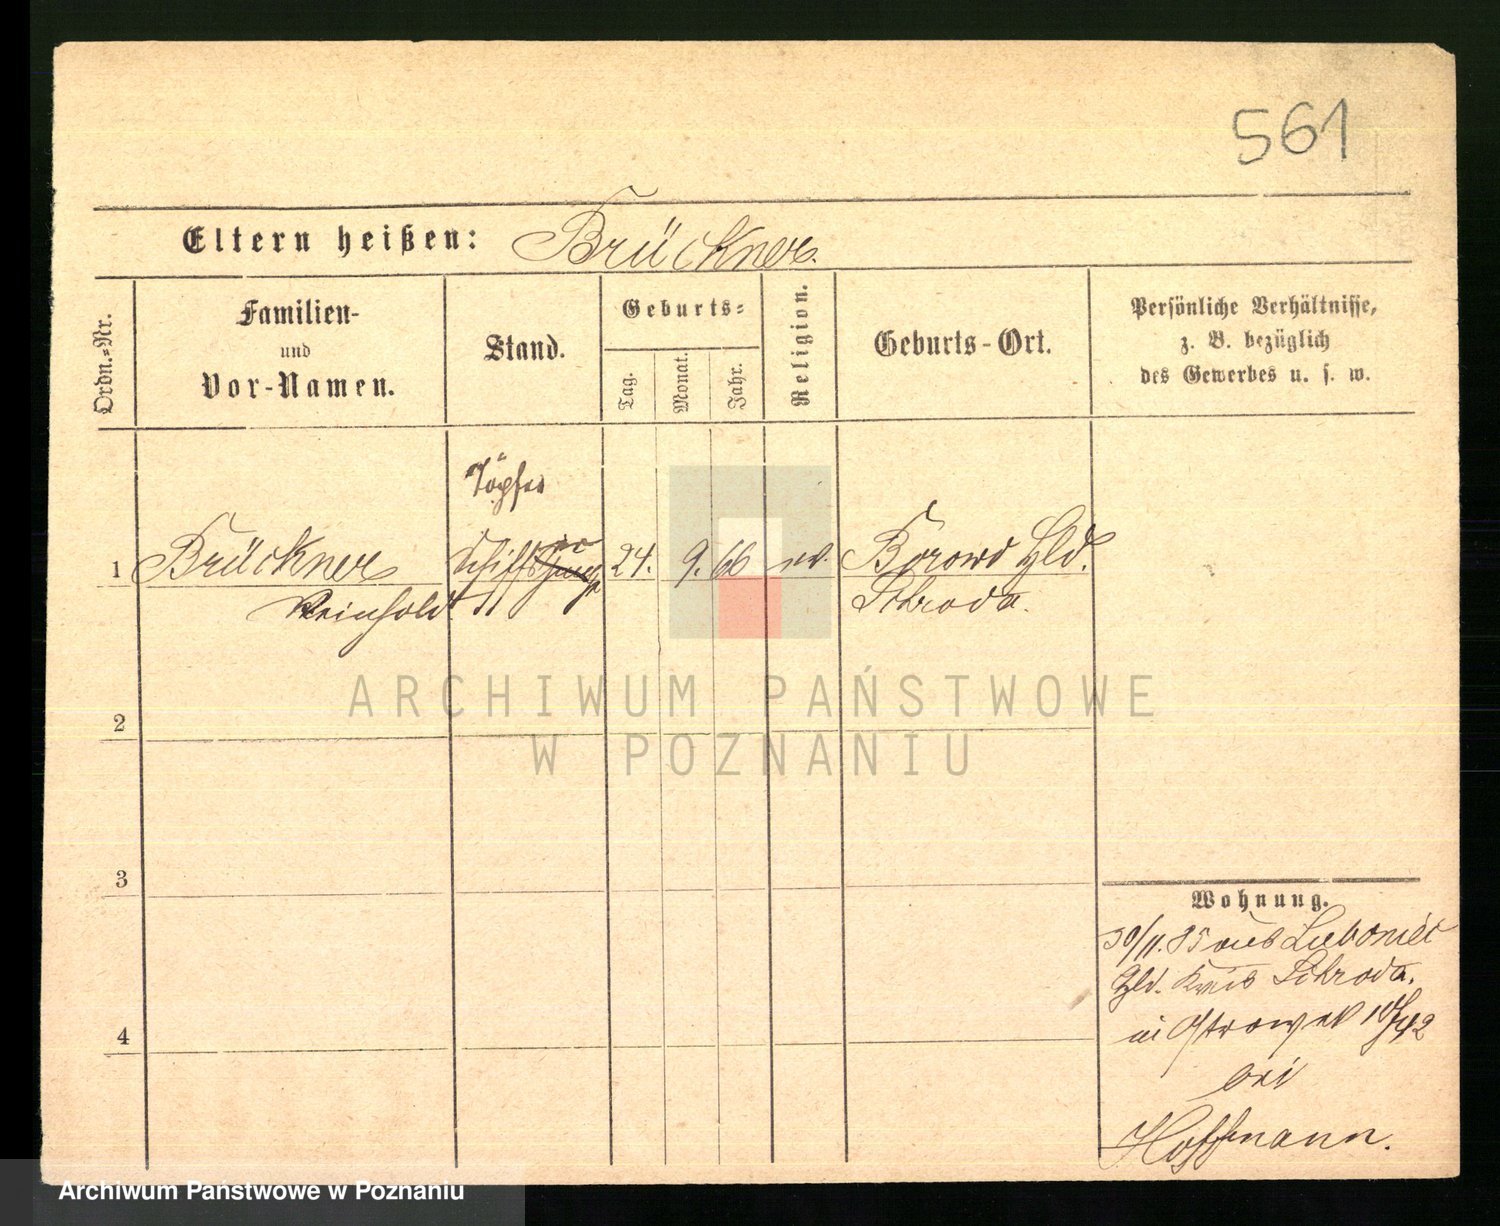 561
Eltern heißen: Brückner.
Ordn.=Nr.
Familien-
und
Vor-Namen.
Stand.
Geburts=
Tag.
Monat.
Jahr.
Religion.
Geburts-Ort.
Persönliche Verhältnisse,
z. B. bezüglich
des Gewerbes u. s. w.
Töpfer
1 Brückner Schiffs 24. 9. 66 ev. Borowo Hld.
Reinhold. Schroda.
ARCHIWUM PAŃSTWOWE
W POZNANIU
2
3
4
Wohnung.
30/11.85 aus
Hld. Kreis Schroda.
in Ostrowek
bei
Hoffmann.
Archiwum Państwowe w Poznaniu